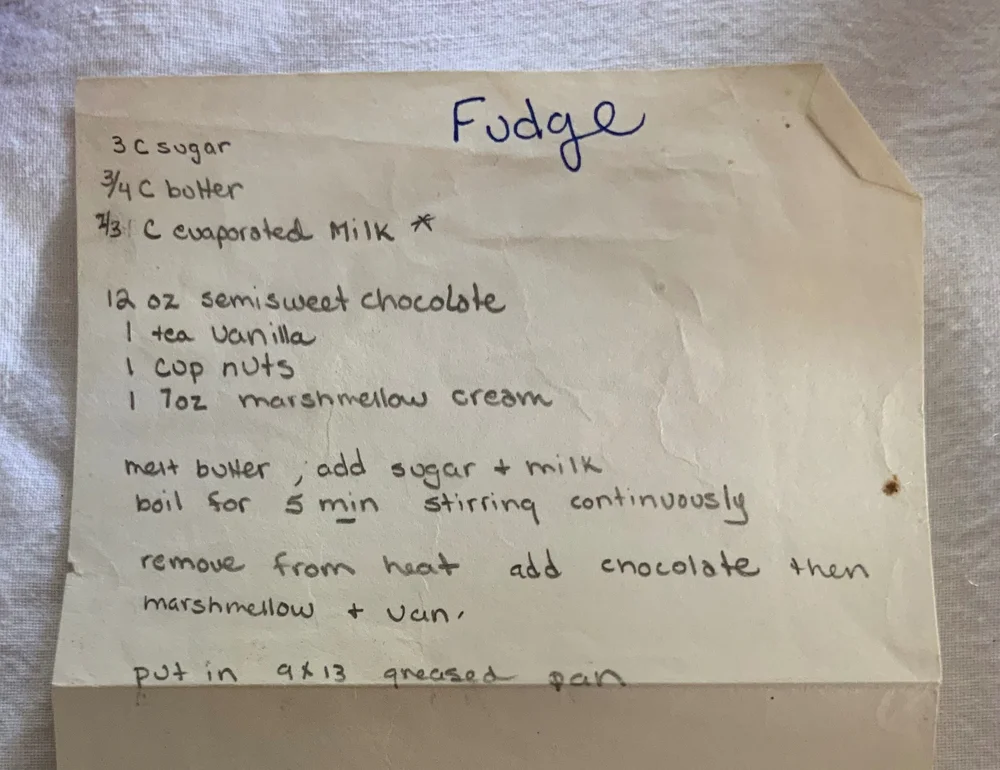 Fudge
3 C sugar
3/4 C butter
2/3 C evaporated Milk *
12 oz semisweet chocolate
1 tea vanilla
1 cup nuts
1 7oz marshmellow cream
melt butter, add sugar + milk
boil for 5 min stirring continuously
remove from heat add chocolate then
marshmellow + van.
put in 9x13 greased pan